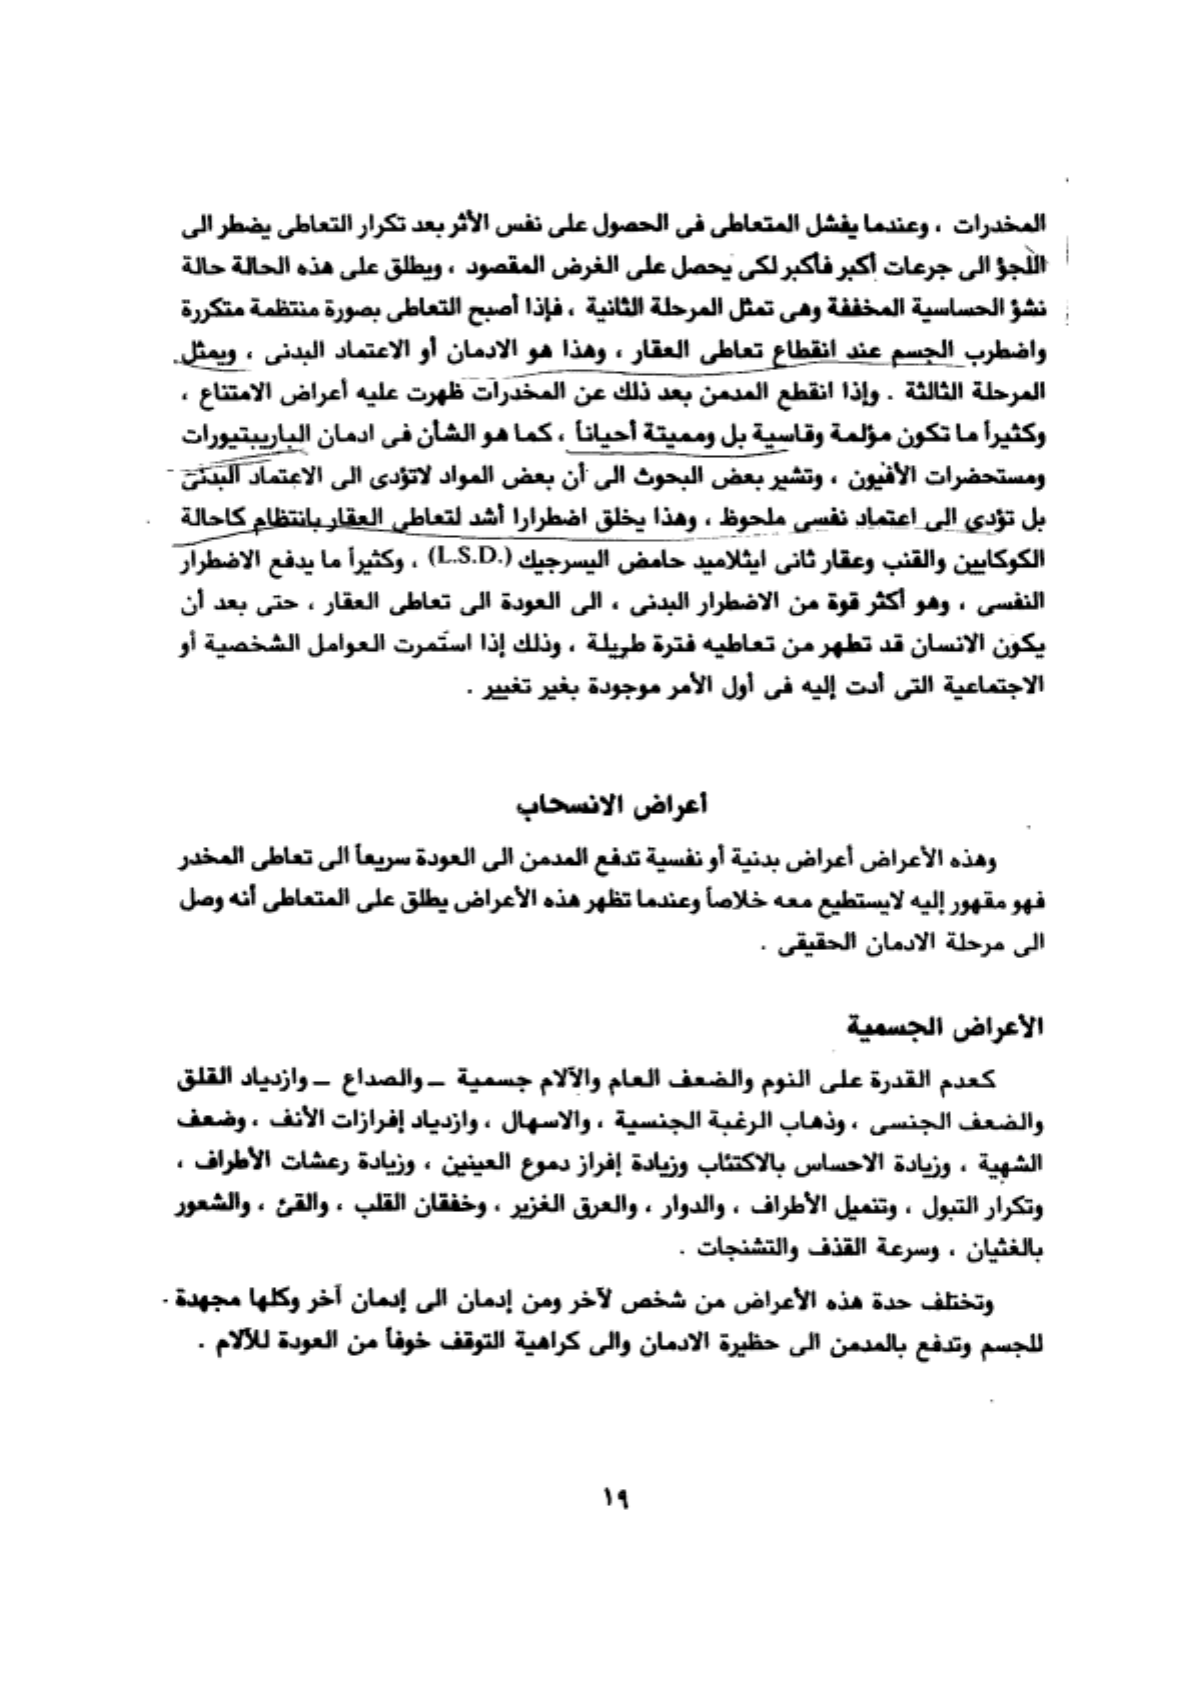 المخدرات ، وعندما يفشل المتعاطى فى الحصول على نفس الأثر بعد تكرار التعاطى يضطر الى
اللجؤ الى جرعات أكبر فأكبر لكى يحصل على الغرض المقصود ، ويطلق على هذه الحالة حالة
نشؤ الحساسية المخففة وهى تمثل المرحلة الثانية ، فإذا أصبح التعاطى بصورة منتظمة متكررة
واضطرب الجسم عند انقطاع تعاطى العقار ، وهذا هو الادمان أو الاعتماد البدنى ، ويمثل
المرحلة الثالثة . وإذا انقطع المدمن بعد ذلك عن المخدرات ظهرت عليه أعراض الامتناع ،
وكثيراً ما تكون مؤلمة وقاسية بل ومميتة أحياناً ، كما هو الشأن فى ادمان الباريبتيورات
ومستحضرات الأفيون ، وتشير بعض البحوث الى أن بعض المواد لاتؤدى الى الاعتماد البدنى
بل تؤدي الى اعتماد نفسى ملحوظ ، وهذا يخلق اضطرارا أشد لتعاطى العقار بانتظام كاحالة
الكوكايين والقنب وعقار ثانى ايثلاميد حامض اليسرجيك (L.S.D.) ، وكثيراً ما يدفع الاضطرار
النفسى ، وهو أكثر قوة من الاضطرار البدنى ، الى العودة الى تعاطى العقار ، حتى بعد أن
يكون الانسان قد تطهر من تعاطيه فترة طويلة ، وذلك إذا استمرت العوامل الشخصية أو
الاجتماعية التى أدت إليه فى أول الأمر موجودة بغير تغيير .
أعراض الانسحاب
وهذه الأعراض أعراض بدنية أو نفسية تدفع المدمن الى العودة سريعاً الى تعاطى المخدر
فهو مقهور إليه لايستطيع معه خلاصاً وعندما تظهر هذه الأعراض يطلق على المتعاطى أنه وصل
الى مرحلة الادمان الحقيقى .
الأعراض الجسمية
كعدم القدرة على النوم والضعف العام والآلام جسمية – والصداع – وازدياد القلق
والضعف الجنسى ، وذهاب الرغبة الجنسية ، والاسهال ، وازدياد إفرازات الأنف ، وضعف
الشهية ، وزيادة الاحساس بالاكتئاب وزيادة إفراز دموع العينين ، وزيادة رعشات الأطراف ،
وتكرار التبول ، وتنميل الأطراف ، والدوار ، والعرق الغزير ، وخفقان القلب ، والقئ ، والشعور
بالغثيان ، وسرعة القذف والتشنجات .
وتختلف حدة هذه الأعراض من شخص لآخر ومن إدمان الى إدمان آخر وكلها مجهدة .
للجسم وتدفع بالمدمن الى حظيرة الادمان والى كراهية التوقف خوفاً من العودة للآلام .
١٩